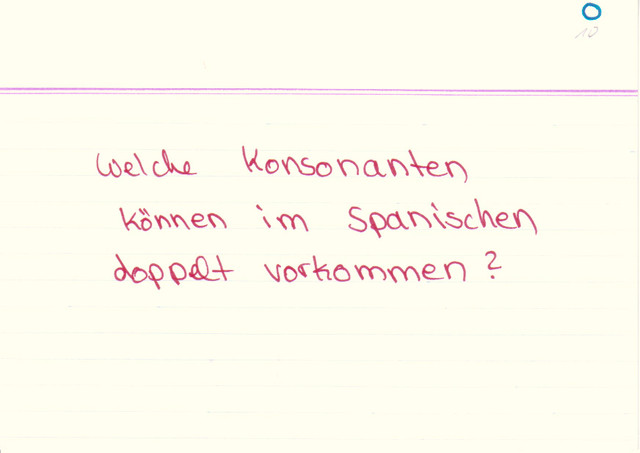 10
Welche Konsonanten
können im Spanischen
doppelt vorkommen?